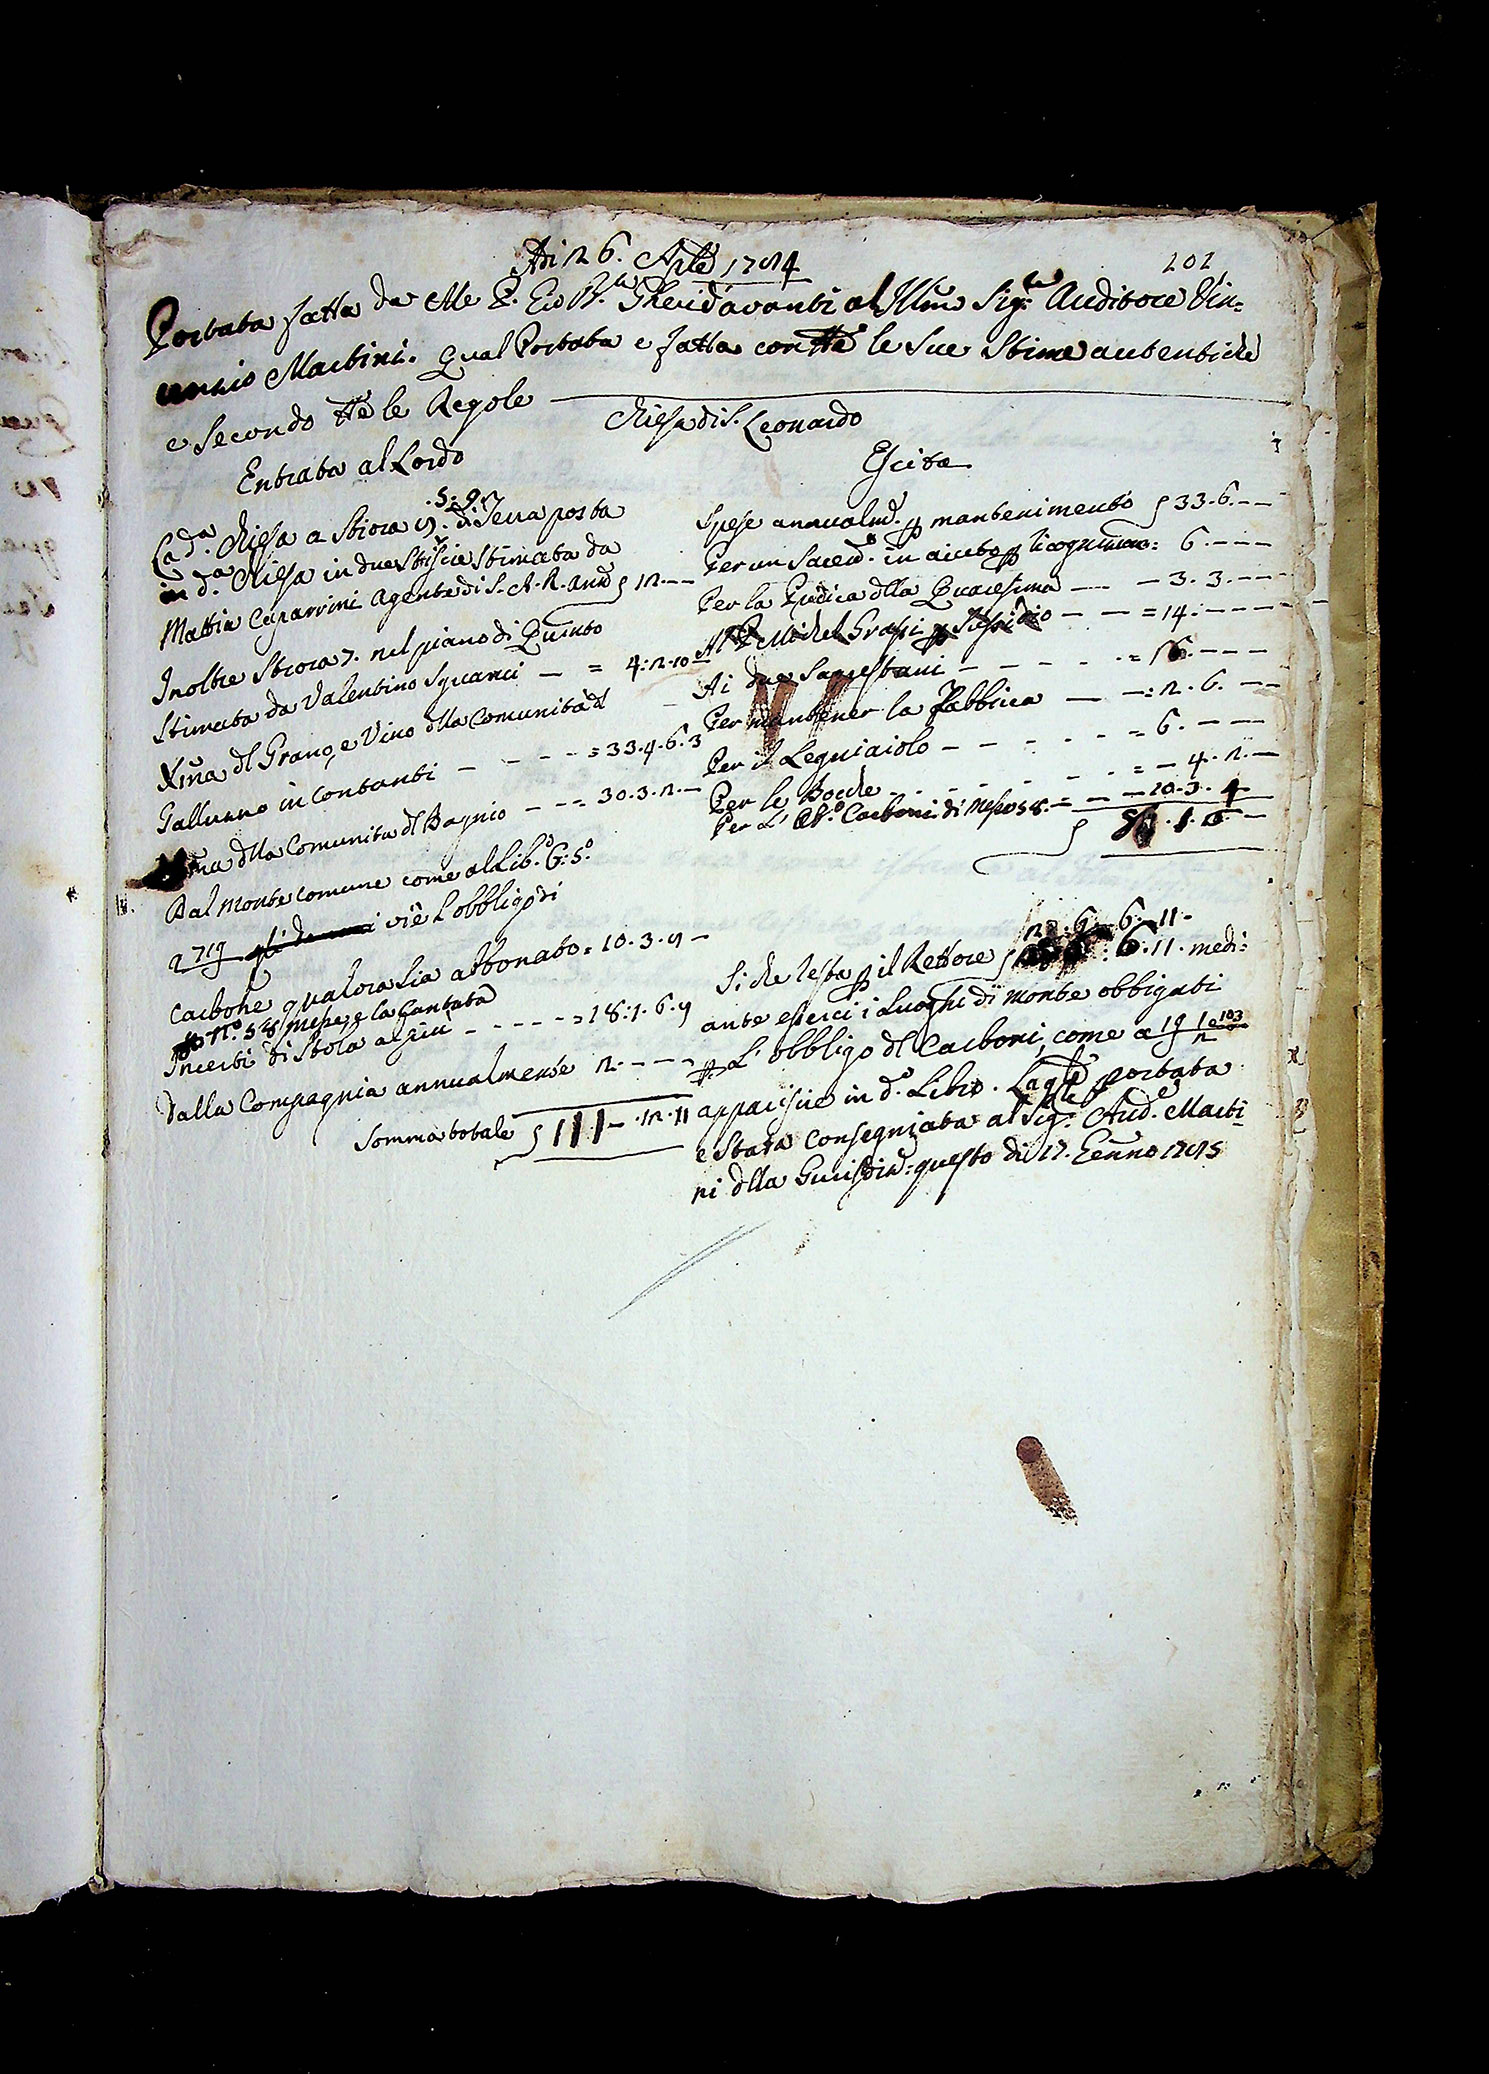 101
Adi 26. Aple 1784
Portata fatta da Me P. Gio B.ta Gheri davanti al Illmo Sig.re Auditore Vin=
cenzio Martini. Qual Portata e fatta con tte le Sue Stime autentiche
e Secondo tte le Regole
Chiesa di S. Leonardo
Entrata al Lordo
.5:9.2
La d.a Chiesa a Stiora 9. di Terra posta
in d.a Chiesa in due Striscie Stimata da
Mattia Caparrini Agente di S. A. R. 12.--
Inoltre Stiora 7. nel piano di Quinto
Stimata da Valentino Sguanci — = 4:2.10
Xma dl Grano, e Vino dlla Comunità dl
Galluzzo in contanti - - - - = 33.4.6.3
Xma dlla Comunita dl Bagnio - - = 30.3.2.-
Dal Monte comune come al Lib.o G: 5.o
a 719 vi è l'obbligo di
carbone qualora sia abbonato = 10.3.9 -
n.o 58 Messe, e la Cantata
Incerti di Stola - - - - - = 18:1.6.9
Dalla Compagnia annualmente 2.---
Somma totale 111-.12.11
Escita
Spese annualm. p mantenimento 33.6.--
Per un Sacerd.e in aiuto p = 6.---
Per la Predica dlla Quaresima — - 3.3.---
Al P. Michel Grassi p Sussidio - - = 14.---
Ai due Sagrestani - - - - - = 16.---
Per mantener la Fabbrica — -: 2.6.--
Per il Legniaiolo - - - - - = 6.---
Per le - - - - - = - 4.2.-
Per L' Ob.o Carboni di Messe 58. = - - 10.3.4
2 .6. 6-11-
Si che resta p il Rettore .6.11. medi:
ante esserci i Luoghi di Monte obbligati
p L' obbligo dl Carboni, come a 19
apparisce in d.o Libro. La qle portata
e Stata Consegniata al Sig.re Aud.e Marti
ni dlla Giurisdiz: questo di 17. Genno 1785